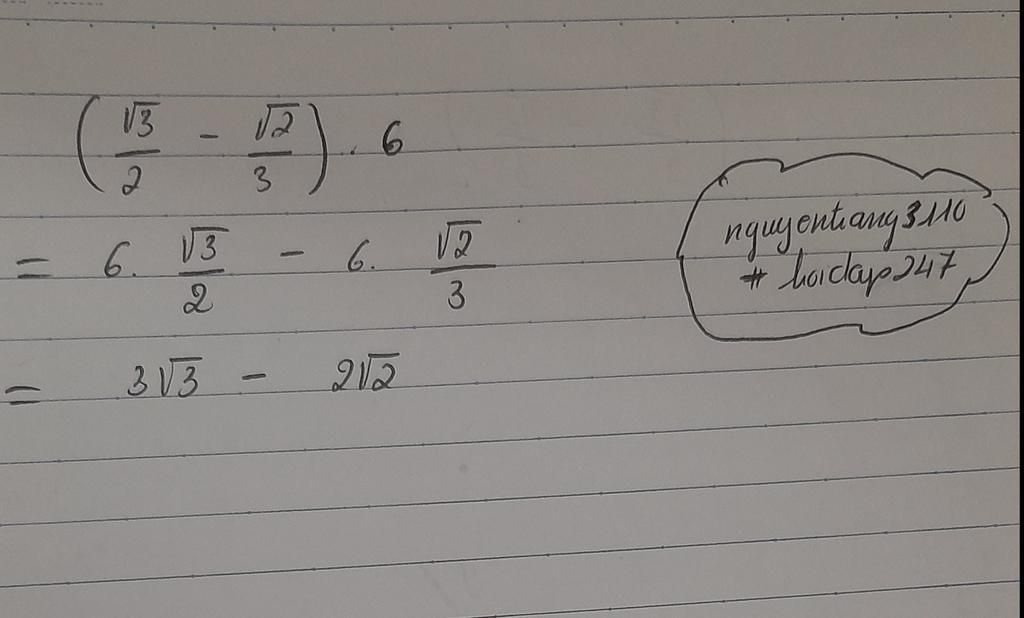 (√3/2 - √2/3) . 6
= 6. √3/2 - 6. √2/3
= 3√3 - 2√2
nguyentrang3110
# hoidap247